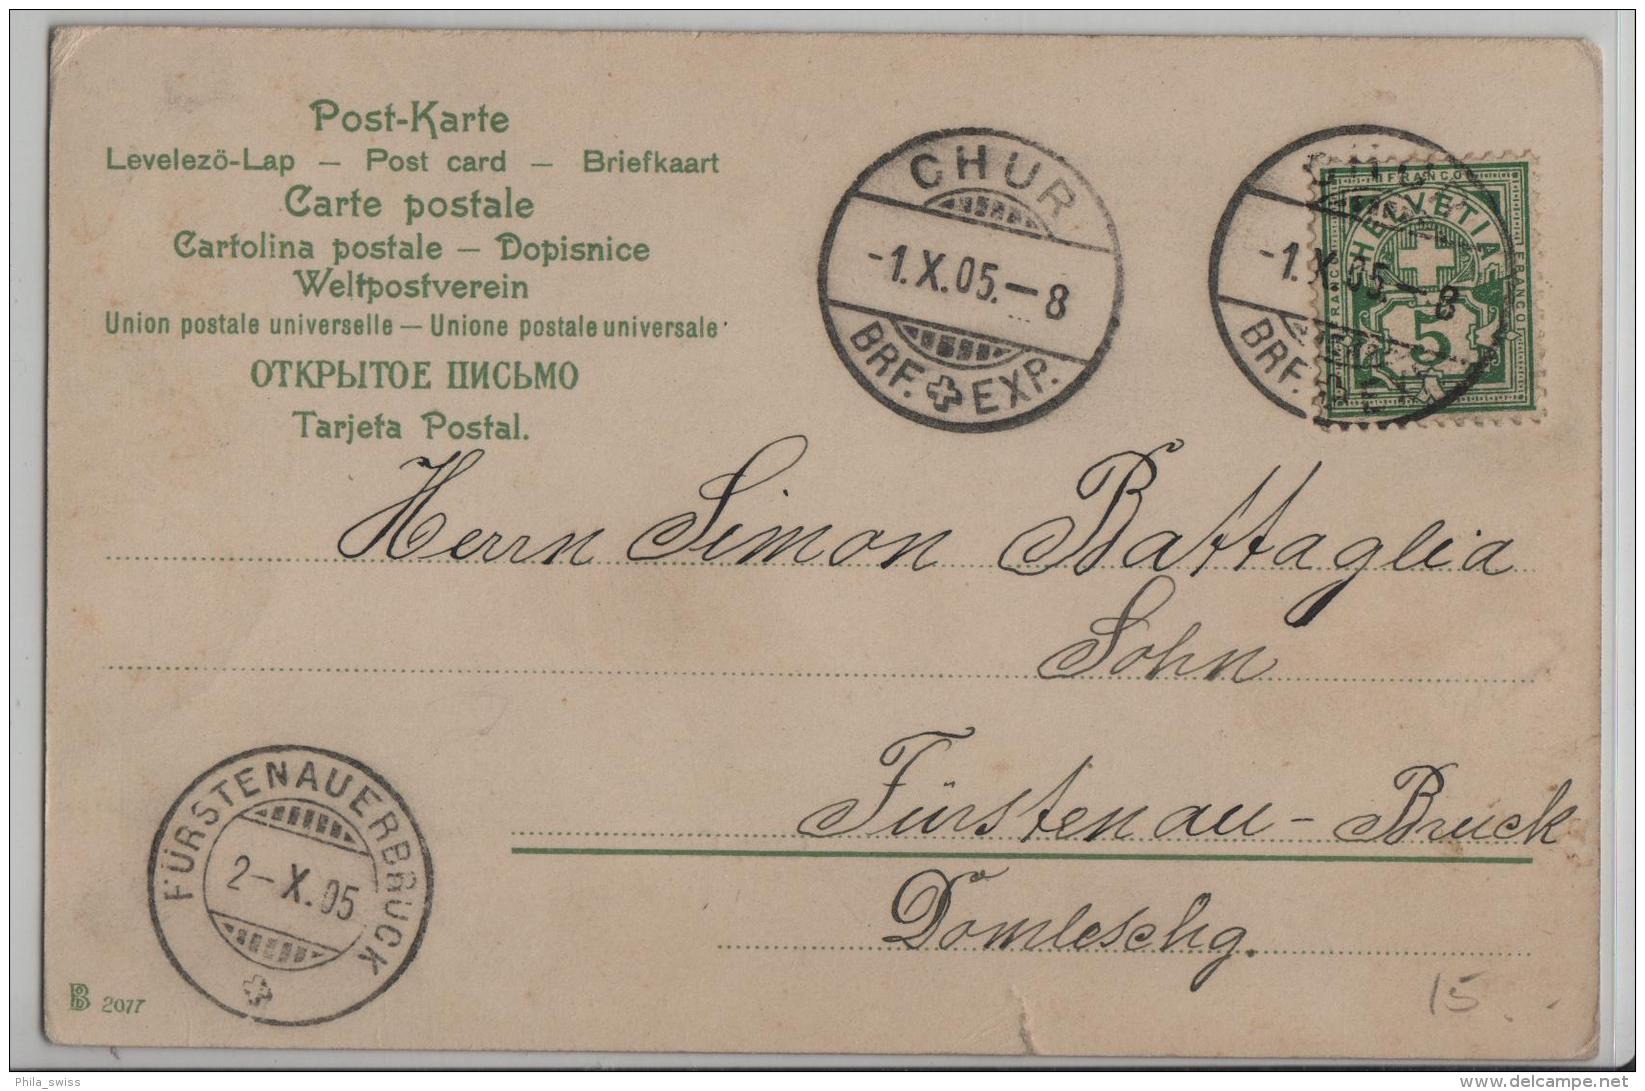 Post-Karte
Levelezö-Lap — Post card — Briefkaart
Carte postale
Cartolina postale — Dopisnice
Weltpostverein
Union postale universelle — Unione postale universale
ОТКРЫТОЕ ПИСЬМО
Tarjeta Postal.
CHUR
-1.X.05.—8
BRF. EXP.
-1.X.05.—8
BRF. EX
FRANCO
HELVETIA
FRANCO
FRANCO
5
Herrn Simon Battaglia
Sohn
Fürstenau-Bruck
Domleschg.
FÜRSTENAUERBRUCK
2-X.05
B 2077
15
Phila_swiss
delcampe.net